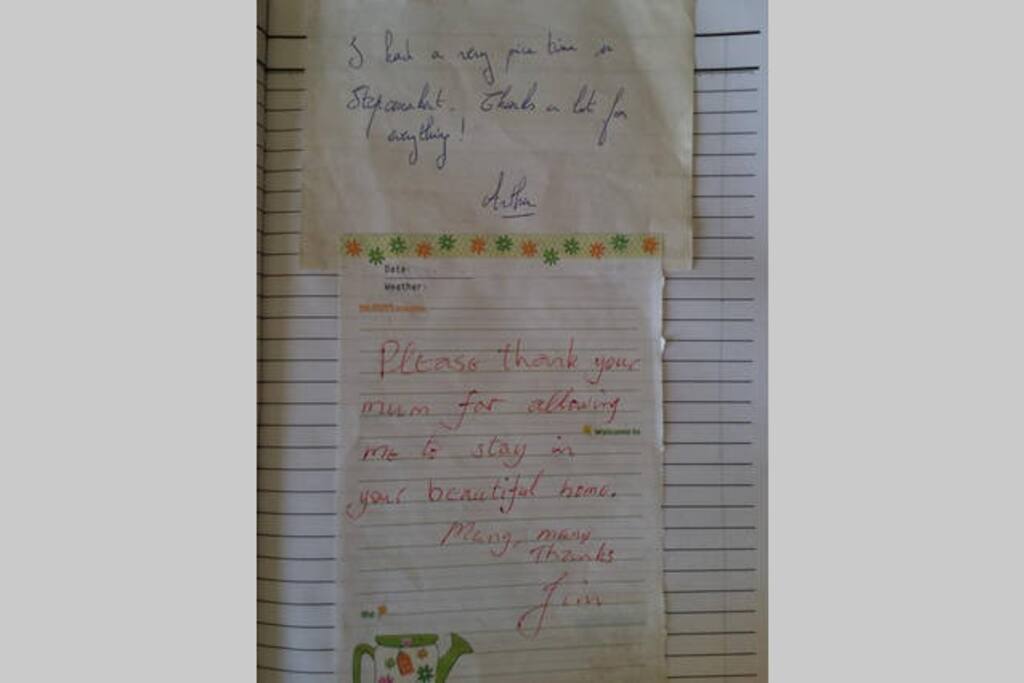 I had a very nice time in
Thanks a lot for
everything!
Arthur
Date:
Weather:
Please thank your
mum for allowing
Welcome to
me to stay in
your beautiful home.
Many, many
Thanks
Jim